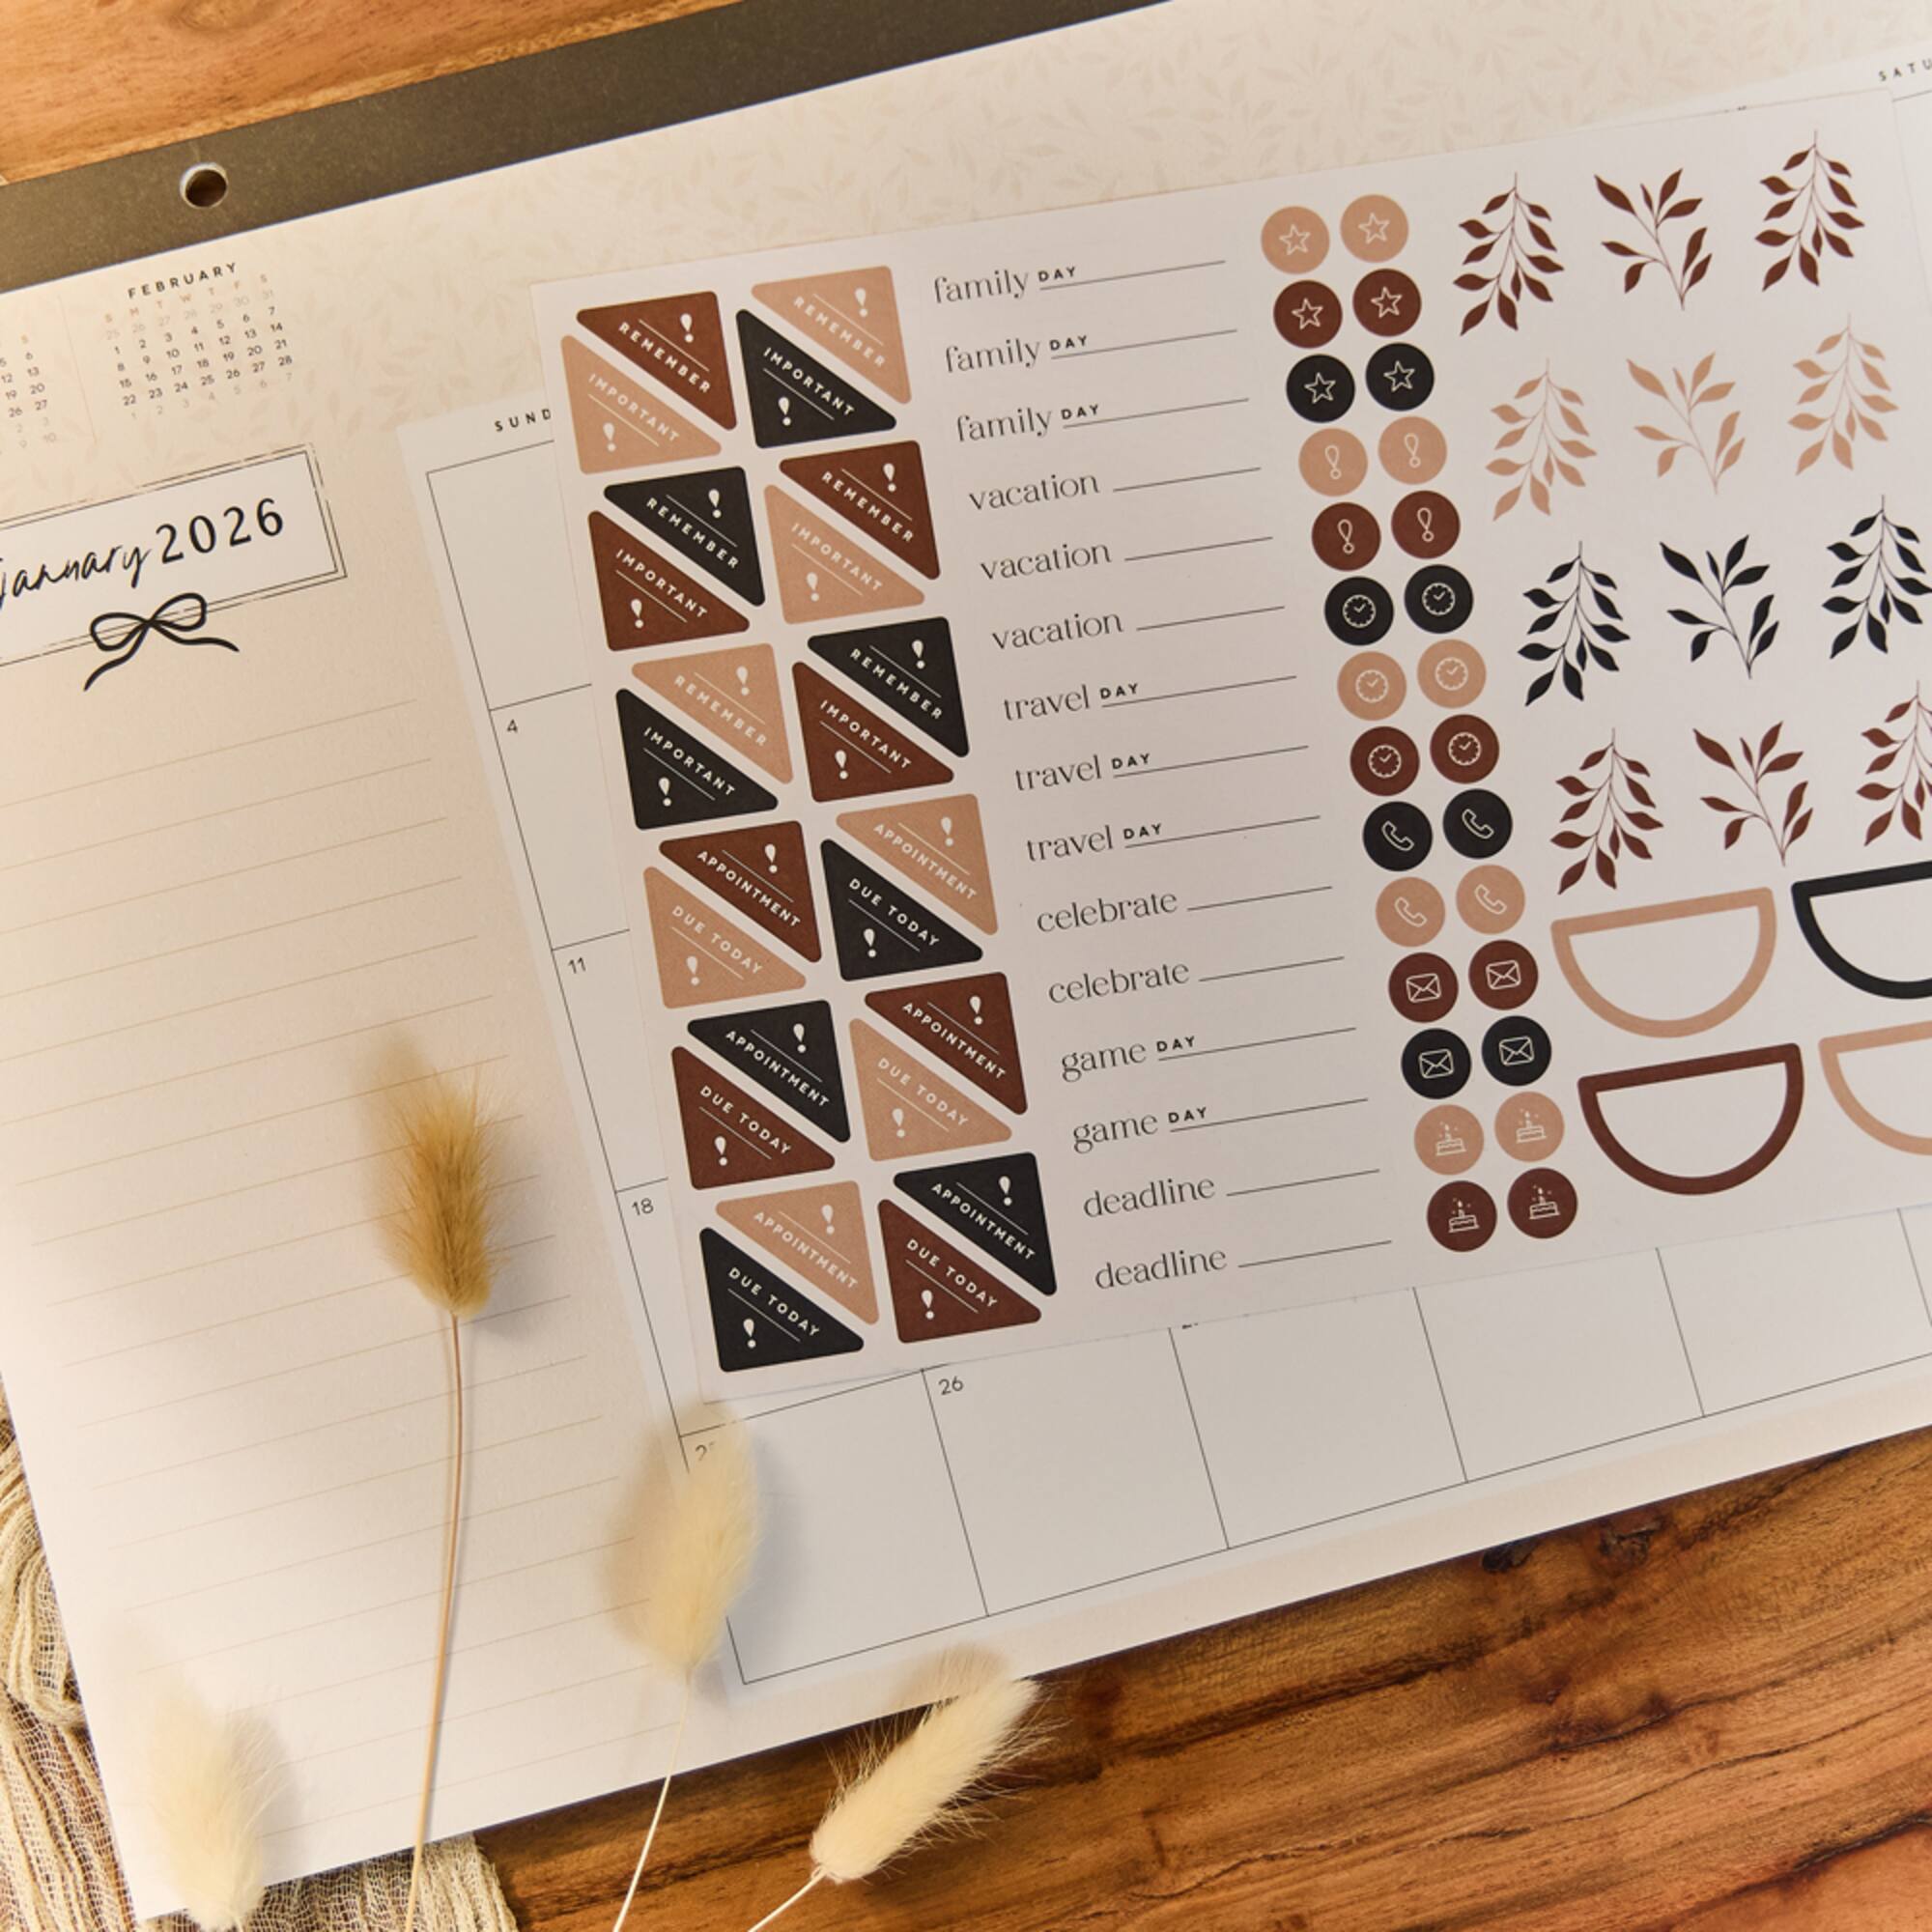 SATU
FEBRUARY
S M T W T F S
25 26 27 28 29 30 31
1 2 3 4 5 6 7
8 9 10 11 12 13 14
15 16 17 18 19 20 21
22 23 24 25 26 27 28
1 2 3 4 5 6 7
S
5 6
12 13
19 20
26 27
2 3
9 10
January 2026
SUND
4
11
18
26
REMEMBER
REMEMBER
IMPORTANT
IMPORTANT
REMEMBER
REMEMBER
IMPORTANT
IMPORTANT
REMEMBER
REMEMBER
IMPORTANT
IMPORTANT
APPOINTMENT
APPOINTMENT
DUE TODAY
DUE TODAY
APPOINTMENT
APPOINTMENT
DUE TODAY
DUE TODAY
APPOINTMENT
APPOINTMENT
DUE TODAY
DUE TODAY
family DAY
family DAY
family DAY
vacation
vacation
vacation
travel DAY
travel DAY
travel DAY
celebrate
celebrate
game DAY
game DAY
deadline
deadline